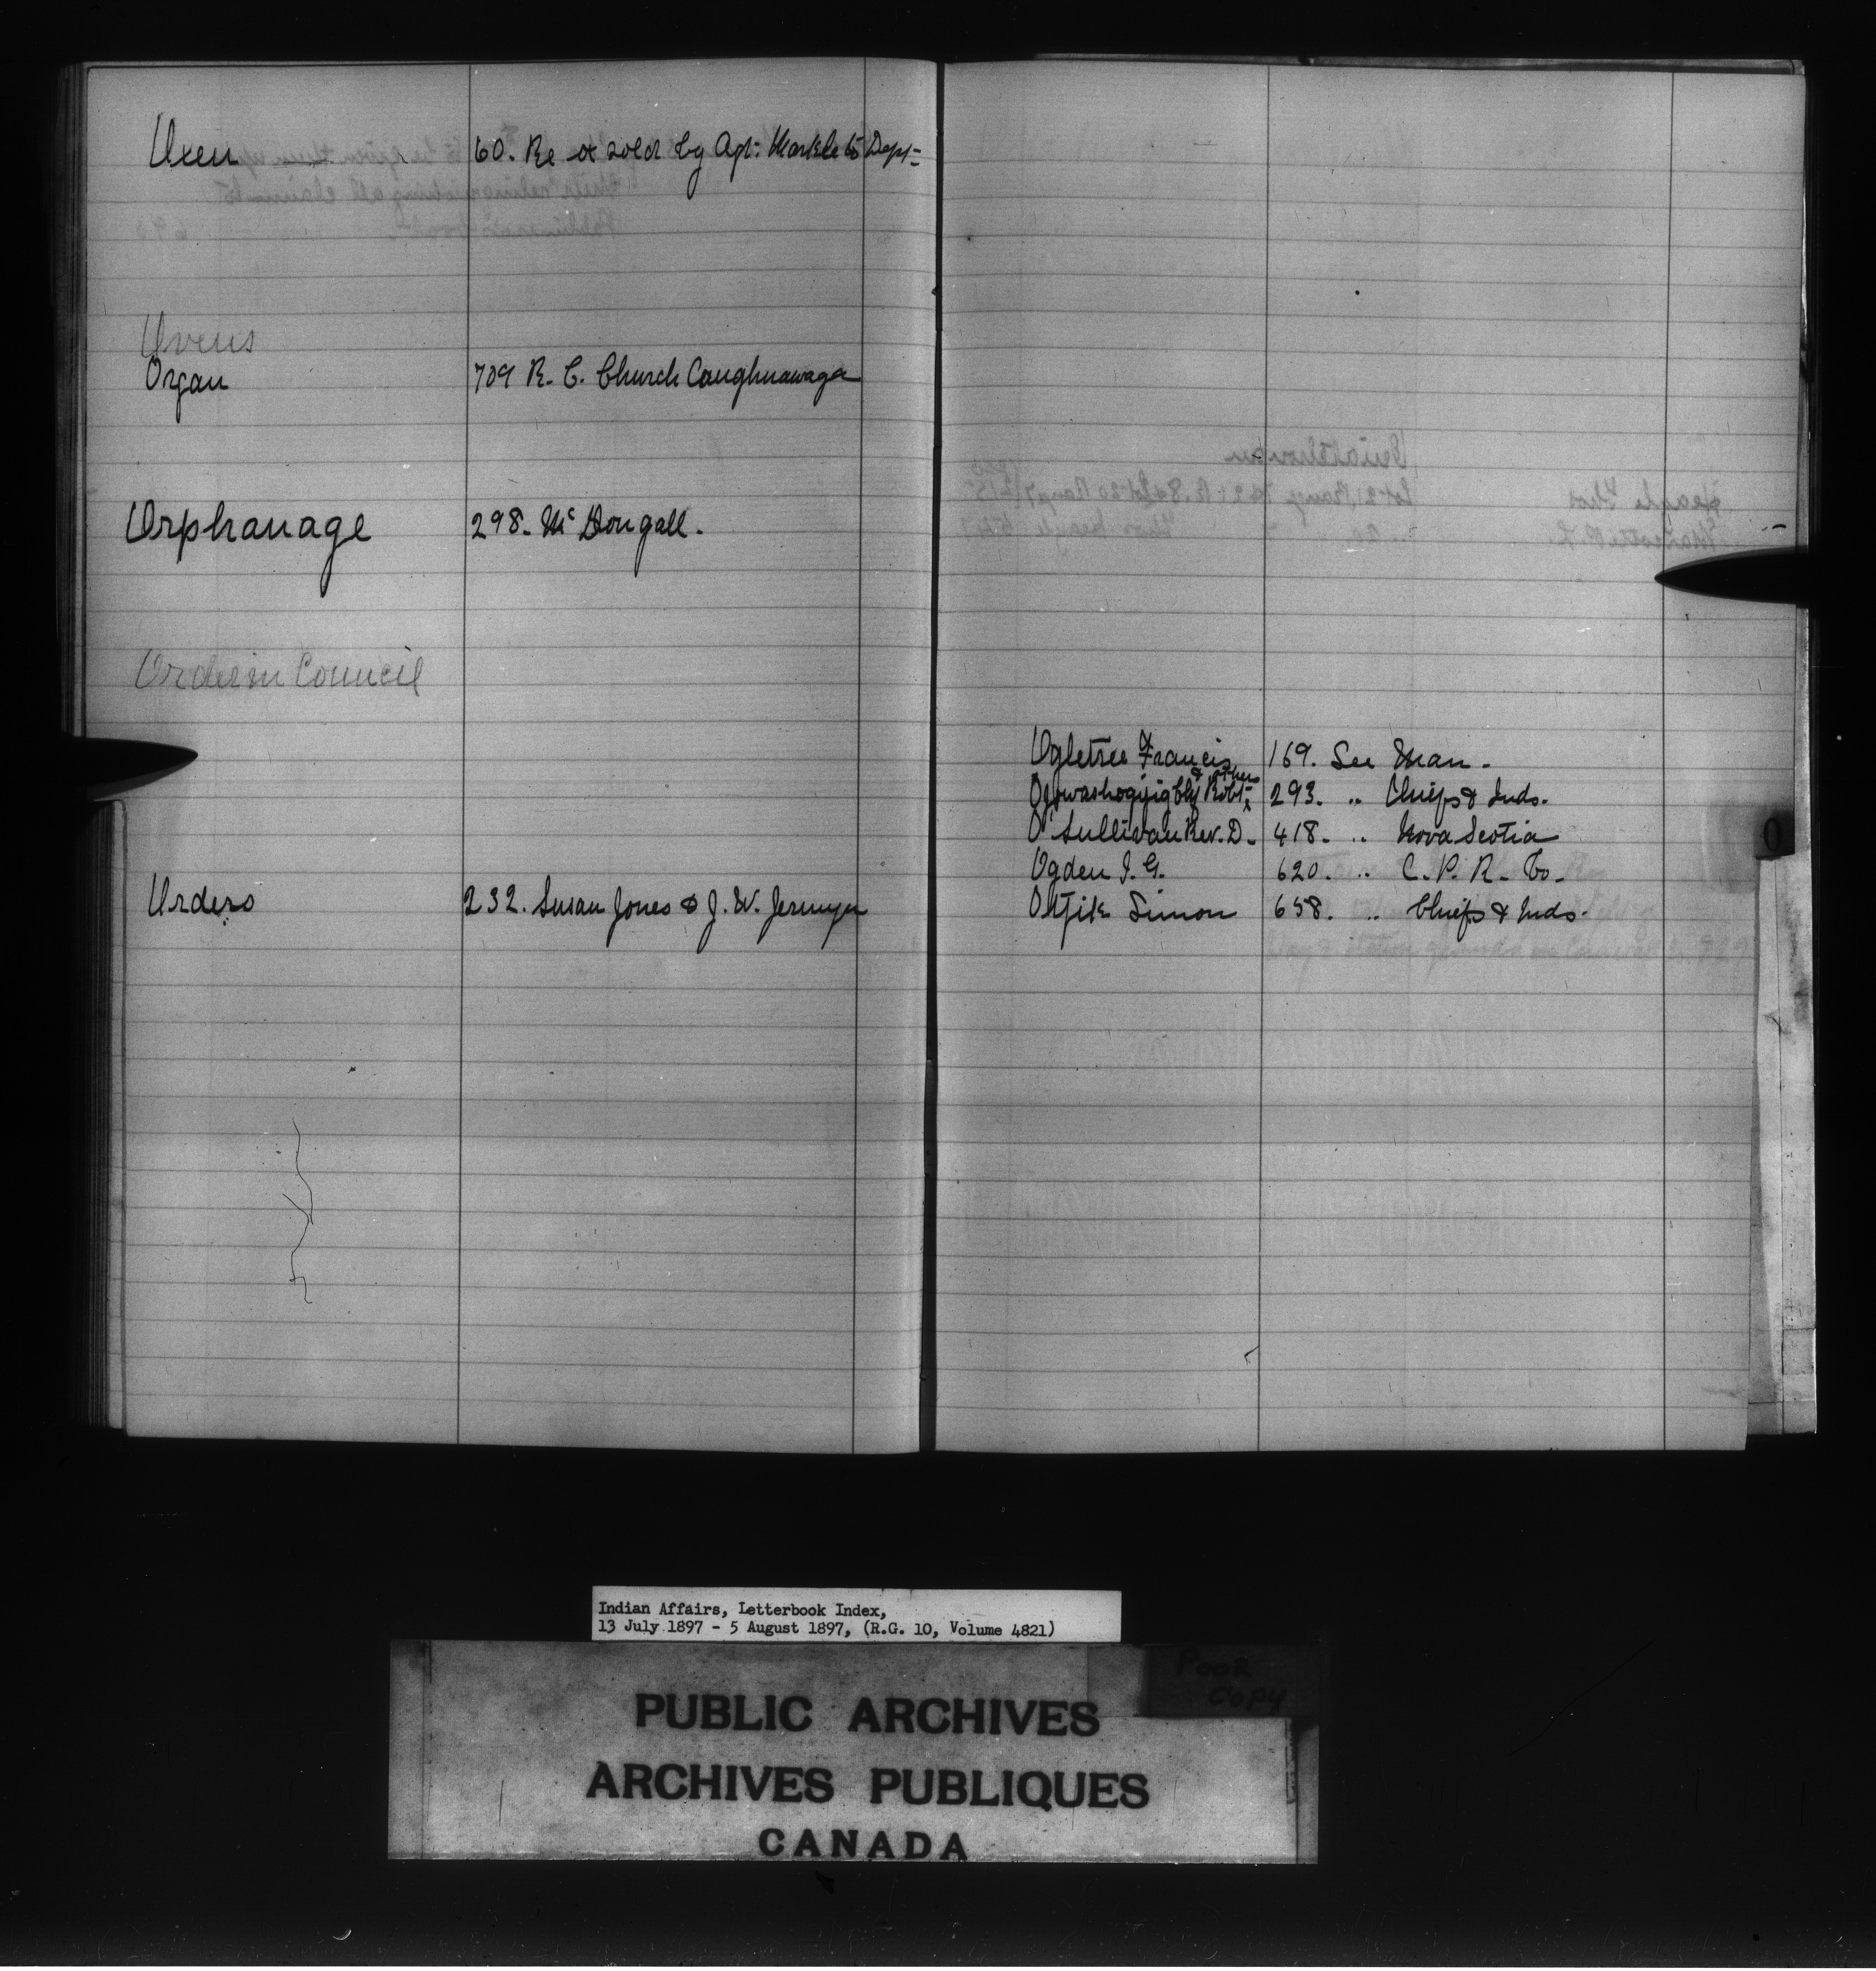 Oxen 60. Re ox sold by Agt: Markle to Dept=
Ovens
Organ 709 R. C. Church Caughnawaga
Orphanage 298. McDougall.
Order in Council
Orders 232. Susan Jones & J. W. Jermyn
Ogletree Francis 169. See Man.
& others
Robt= 293. " Chiefs & Inds.
O'Sullivan Rev. D. 418. " Nova Scotia
Ogden I. G. 620. " C. P. R. Co.
Simon 658. " Chiefs & Inds.
O
Indian Affairs, Letterbook Index,
13 July 1897 - 5 August 1897, (R.G. 10, Volume 4821)
POOR
COPY
PUBLIC ARCHIVES
ARCHIVES PUBLIQUES
CANADA